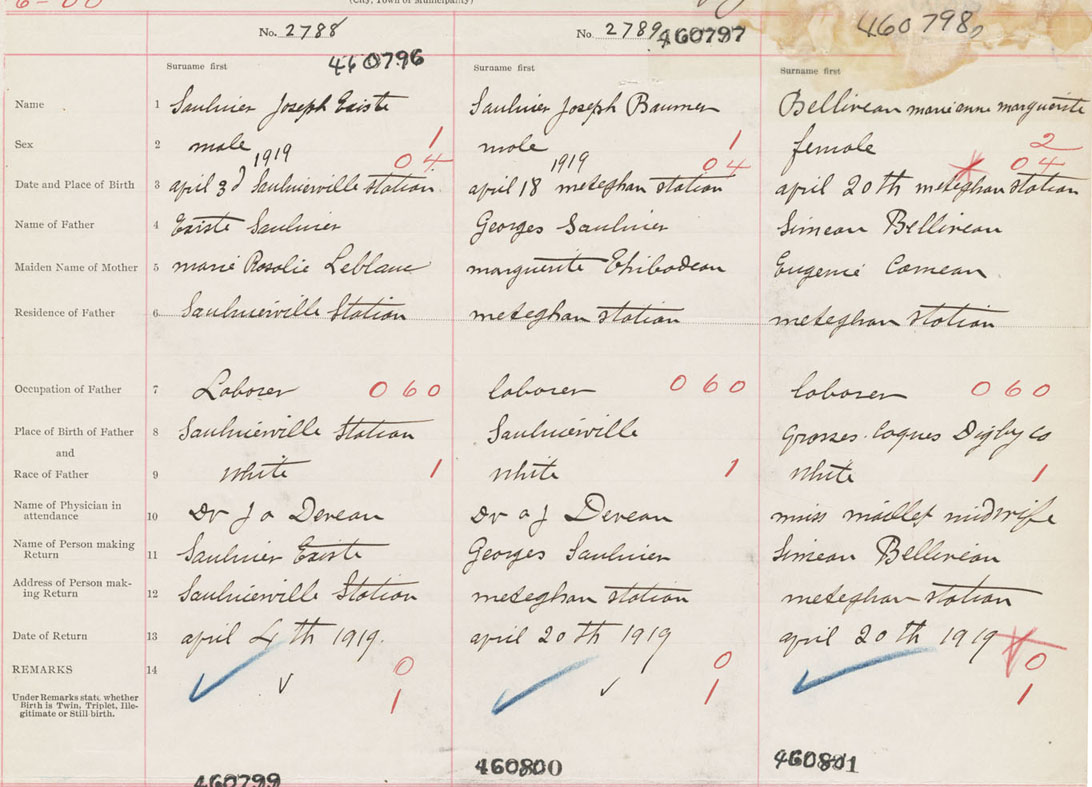 6-00
(City, Town or Municipality)
No. 2788 No. 2789 460797 460798
460796
Surname first Surname first Surname first
Name 1 Saulnier Joseph Existe Saulnier Joseph Baumen Belliveau marie anne marguerite
Sex 2 male 1 male 1 female 2
1919 04 1919 04 04
Date and Place of Birth 3 april 3d Saulnierville Station april 18 meteghan station april 20th meteghan station
Name of Father 4 Existe Saulnier Georges Saulnier Simeon Belliveau
Maiden Name of Mother 5 marie Rosalie Leblanc marguerite Thibodeau Eugenie Comeau
Residence of Father 6 Saulnierville Station meteghan station meteghan station
Occupation of Father 7 Laborer 060 laborer 060 laborer 060
Place of Birth of Father 8 Saulnierville Station Saulnierville Grosses Coques Digby Co
and
Race of Father 9 White 1 White 1 White 1
Name of Physician in
attendance 10 Dr J a Deveau Dr a J Deveau miss maillet midwife
Name of Person making
Return 11 Saulnier Existe Georges Saulnier Simeon Belliveau
Address of Person mak-
ing Return 12 Saulnierville Station meteghan station meteghan station
Date of Return 13 april 4th 1919. april 20th 1919 april 20th 1919
REMARKS 14 0 0 0
Under Remarks state whether
Birth is Twin, Triplet, Ille-
gitimate or Still birth. 1 1 1
460799 460800 460801